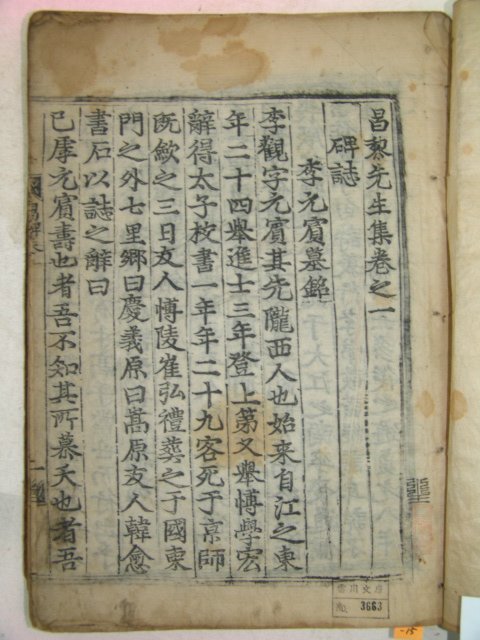 昌黎先生集卷之一
碑誌
李元賓墓銘
李觀字元賓其先隴西人也始來自江之東
年二十四舉進士三年登上第又舉博學宏
辭得太子校書一年年二十九客死于京師
既斂之三日友人博陵崔弘禮葬之于國東
門之外七里鄉曰慶義原曰嵩原友人韓愈
書石以誌之辭曰
已虖元賓壽也者吾不知其所慕夭也者吾
3663
-15